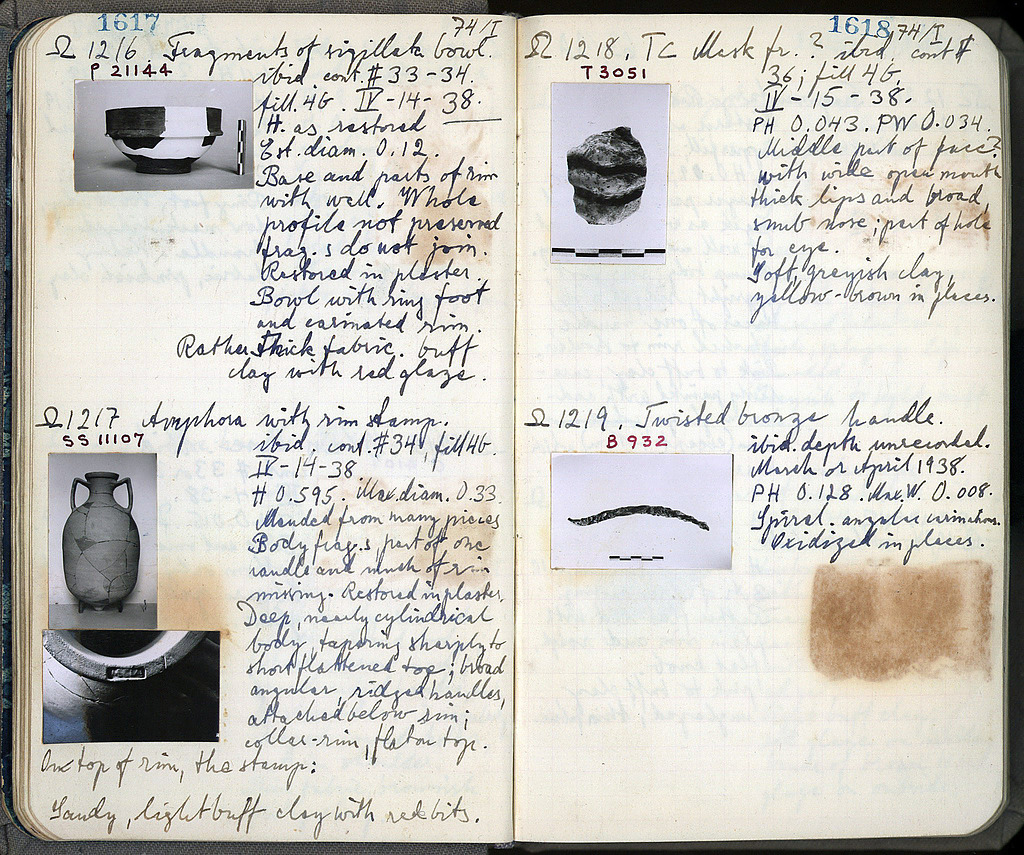 1617
74/I
Ω 1216 Fragments of sigillata bowl.
P 21144
ibid. cont. # 33-34.
fill 4G. IV-14-38.
H. as restored
Est. diam. 0.12.
Base and parts of rim
with wall. Whole
profile not preserved
frag.s do not join.
Restored in plaster.
Bowl with ring foot
and carinated rim.
Rather thick fabric. buff
clay with red glaze.
Ω 1217 Amphora with rim stamp.
SS 11107
ibid. cont. # 34, fill 4G.
IV-14-38
H 0.595. Max. diam. 0.33.
Mended from many pieces
Body frag.s part of one
handle and much of rim
missing. Restored in plaster.
Deep, nearly cylindrical
body, tapering sharply to
short flattened toe; broad
angular, ridged handles,
attached below rim;
collar-rim, flat on top.
On top of rim, the stamp:
Sandy, light buff clay with red bits.
1618
74/I
Ω 1218. TC Mask fr. ? ibid, cont #
T 3051
36; fill 4G.
IV-15-38.
PH 0.043. PW 0.034.
Middle part of face?
with wide open mouth
thick lips and broad,
snub nose; part of hole
for eye.
Soft, greyish clay,
yellow-brown in places.
Ω 1219. Twisted bronze handle.
B 932
ibid. depth unrecorded.
March or April 1938.
PH 0.128. Max. W. 0.008.
Spiral. angular carinations.
Oxidized in places.